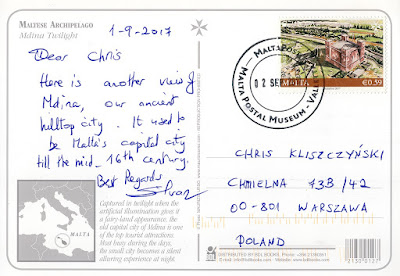 MALTESE ARCHIPELAGO
Mdina Twilight
1-9-2017
Dear Chris
Here is another view of
Mdina, our ancient
hilltop city. It used to
be Malta's capital city
till the mid-16th century.
Best Regards
Captured in twilight when the
artificial illumination gives it
a fairy-land appearance, the
old capital city of Mdina is one
of the top tourist attractions.
Most busy during the days,
the small city becomes a silent
alluring experience at night.
MALTA
MALTAPOST
MALTA POSTAL MUSEUM - VALL
02 SE
MALTA €0.59
CHRIS KLISZCZYŃSKI
CHMIELNA 73B/42
00-801 WARSZAWA
POLAND